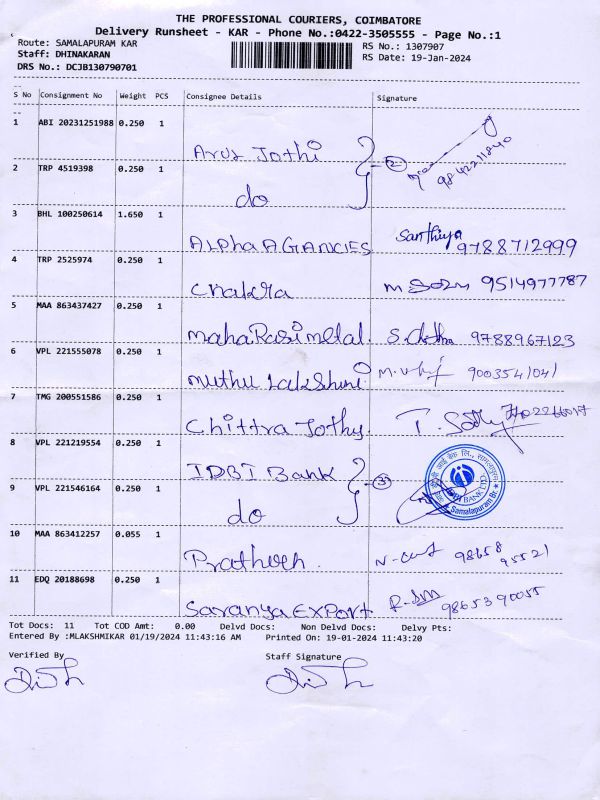 THE PROFESSIONAL COURIERS, COIMBATORE
Delivery Runsheet - KAR - Phone No.:0422-3505555 - Page No.:1
Route: SAMALAPURAM KAR
RS No.: 1307907
Staff: DHINAKARAN
RS Date: 19-Jan-2024
DRS No.: DCJB130790701
S No Consignment No Weight PCS Consignee Details Signature
1 ABI 20231251988 0.250 1 Arul Jothi 9842211840
2 TRP 4519398 0.250 1 do
3 BHL 100250614 1.650 1 ALPha AGANCIES Santhiya 9788712999
4 TRP 2525974 0.250 1 Chakra 9514977787
5 MAA 863437427 0.250 1 mahaRasi metal. 9788967123
6 VPL 221555078 0.250 1 muthu Lakshmi 9003541041
7 TMG 200551586 0.250 1 Chittra Jothy.
8 VPL 221219554 0.250 1 IDBI Bank
9 VPL 221546164 0.250 1 do
IDBI BANK LTD
Samalapuram Br.
10 MAA 863412257 0.055 1 98658 95521
11 EDQ 20188698 0.250 1 Saranya EXPort 9865390055
Tot Docs: 11 Tot COD Amt: 0.00 Delvd Docs: Non Delvd Docs: Delvy Pts:
Entered By :MLAKSHMIKAR 01/19/2024 11:43:16 AM Printed On: 19-01-2024 11:43:20
Verified By Staff Signature